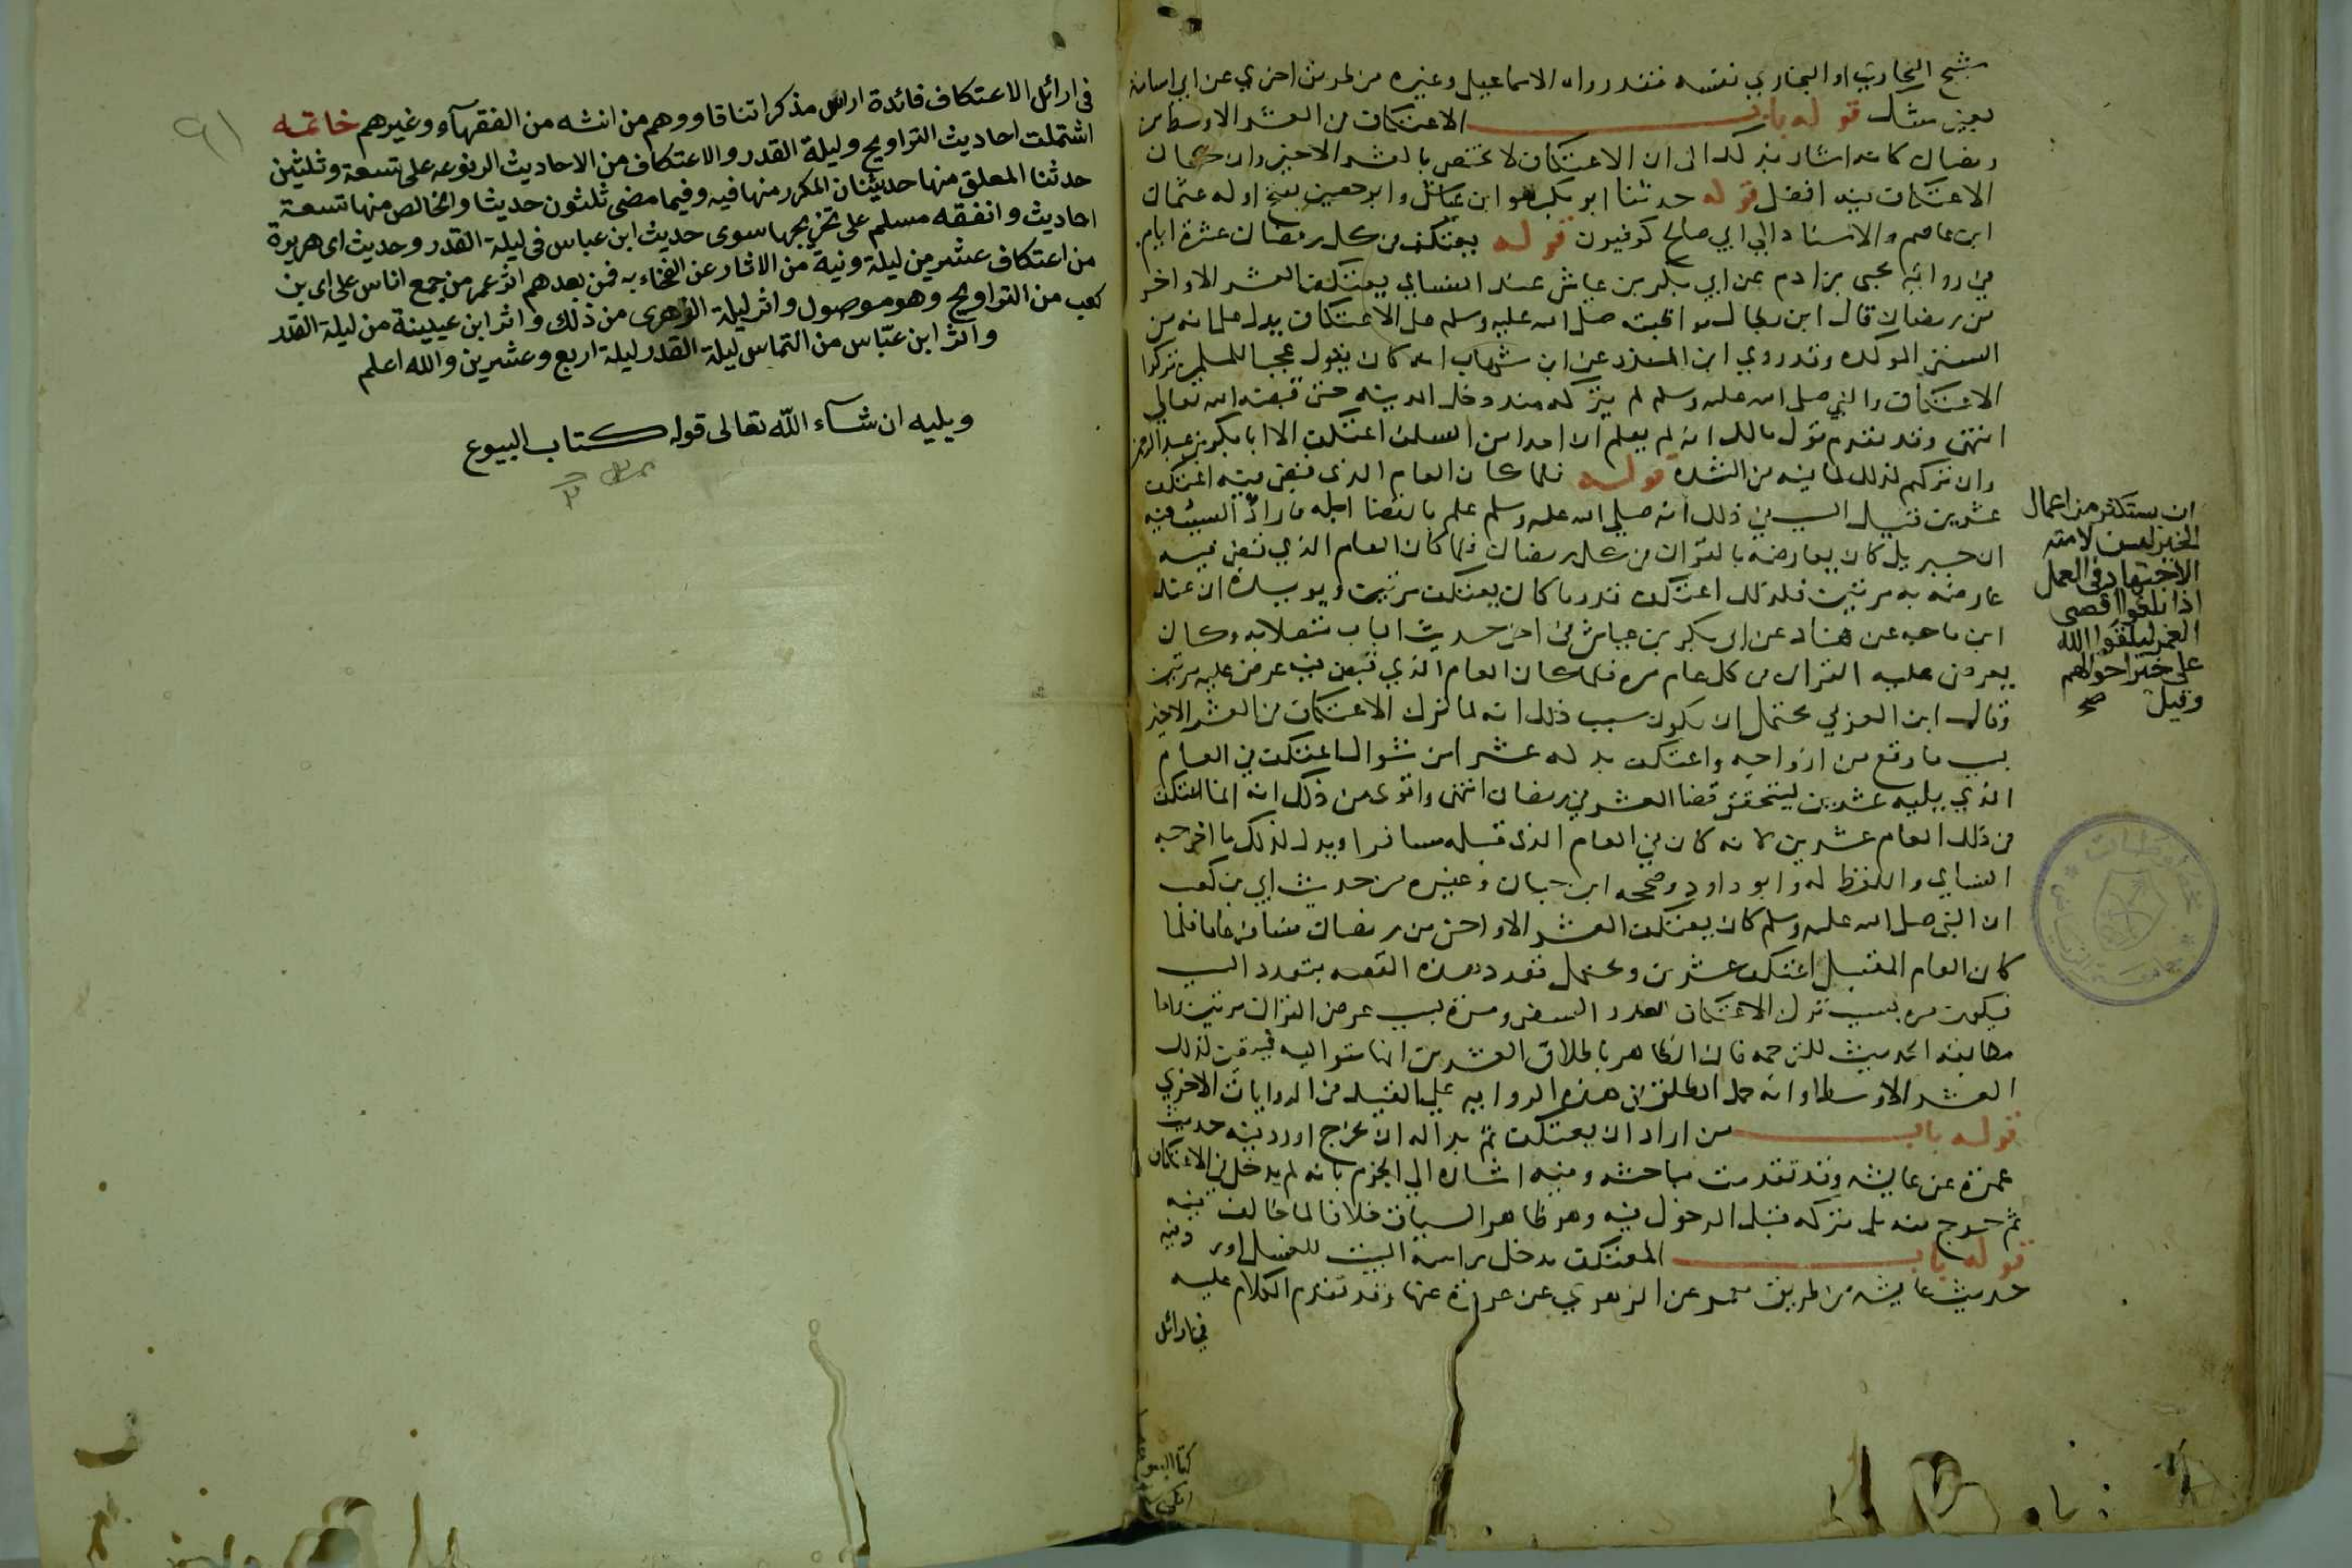 شيخ البخاري او البخاري نفسه فقد رواه الاسماعيلي وغيره من طريق اخري عن ابي اسامة
بغير شك قوله باب الاعتكاف في العشر الاوسط من
رمضان كانه اشار بذلك الى ان الاعتكاف لا يختص بالعشر الاخير وان كان
الاعتكاف فيه افضل قوله حدثنا ابو بكر هو ابن عياش وابو حصين بفتح اوله عثمان
ابن عاصم والاسناد الي ابي صالح كوفيون قوله يعتكف في كل رمضان عشرة ايام
في رواية يحيى بن ادم عن ابي بكر بن عياش عند النسابي يعتكف العشر الاواخر
من رمضان قال ابن بطال مواظبته صلى الله عليه وسلم على الاعتكاف يدل على انه من
السنن الموكده وقد روي ابن المنذر عن ابن شهاب انه كان يقول عجبا للمسلمين تركوا
الاعتكاف والنبي صلى الله عليه وسلم لم يتركه منذ دخل المدينه حتى قبضه الله تعالي
انتهى وقد تقدم قول مالك انه لم يعلم ان احدا من السلف اعتكف الا ابا بكر بن عبد الرحمن
وان تركهم لذلك لما فيه من الشدة قوله فلما كان العام الذي قبض فيه اعتكف
عشرين قيل السبب في ذلك انه صلي الله عليه وسلم علم بانقضا اجله فاراد السبب فيه
ان جبريل كان يعارضه بالقران في كل رمضان فلما كان العام الذي قبض فيه
عارضه به مرتين فلذلك اعتكف قدر ما كان يعتكف مرتين ويويده ان عند
ابن ماجه عن هناد عن ابي بكر بن عياش في اخر حديث الباب متصلا به وكان
يعرض عليه القران في كل عام مرة فلما كان العام الذي قبض فيه عرض عليه مرتين
وقال ابن العربي يحتمل ان يكون سبب ذلك انه لما ترك الاعتكاف في العشر الاخير
بسبب ما وقع من ازواجه واعتكف بدله عشرا من شوال اعتكف في العام
الذي يليه عشرين ليتحقق قضا العشر في رمضان انتهى واقوى من ذلك انه انما اعتكف
في ذلك العام عشرين لانه كان في العام الذي قبله مسافرا ويدل لذلك ما اخرجه
النسابي واللفظ له وابو داود وصححه ابن حبان وغيره من حديث ابي بن كعب
ان النبي صلى الله عليه وسلم كان يعتكف العشر الاواخر من رمضان فسافر عاما فلما
كان العام المقبل اعتكف عشرين ويحتمل تعدد هذه القصه بتعدد السبب
فيكون مره بسبب ترك الاعتكاف لعذر السفر ومرة بسبب عرض القران مرتين واما
مطابقة الحديث للترجمه فان الظاهر باطلاق العشرين انها متواليه فيتعين لذلك
العشر الاوسط او انه حمل المطلق في هذه الروايه علي المقيد في الروايات الاخري
قوله باب من اراد ان يعتكف ثم بدا له ان يخرج اورد فيه حديث
عمرة عن عايشه وقد تقدمت مباحثه وفيه اشارة الي الجزم بانه لم يدخل في الاعتكاف
ثم خرج منه بل تركه قبل الدخول فيه وهو ظاهر السياق خلافا لما خالف فيه
قوله باب المعتكف يدخل راسه البيت للغسل اورد فيه
حديث عايشه من طريق معمر عن الزهري عن عروة عنها وقد تقدم الكلام عليه
في اوائل
ان يستكثر من اعمال
الخير ليسن لامته
الاجتهاد في العمل
اذا بلغوا اقصى
العمر ليلقوا الله
على خير احوالهم
وقيل صح
في اوائل الاعتكاف فائدة مذكرا اتفاقا ووهم من انثه من الفقهآء وغيرهم خاتمه
اشتملت احاديث التراويح وليلة القدر والاعتكاف من الاحاديث المرفوعه على تسعة وثلثين
حدثنا المعلق منها حديثان المكرر منها فيه وفيما مضى ثلثون حديثا والخالص منها تسعة
احاديث وانفقه مسلم على تخريجها سوى حديث ابن عباس في ليلة القدر وحديث ابى هريرة
من اعتكاف عشرين ليلة وفية من الاثار عن به فمن بعدهم اثر عمر من جمع اناس على ابى بن
كعب من التراويح وهو موصول واثر ليلة الزهرى من ذلك واثر ابن عيينة من ليلة القدر
واثر ابن عباس من التماس ليلة القدر ليلة اربع وعشرين والله اعلم
ويليه ان شآء الله تعالى قوله كتاب البيوع